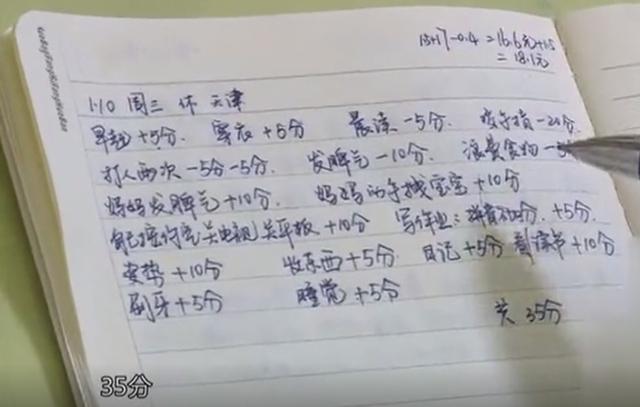 15+1.7-0.4=16.6元+1.5
=18.1元
1.10 周三 休 天津
早起+5分. 穿衣+5分 晨读-5分. -20分.
打人两次-5分-5分. 发脾气-10分. 浪费食物-5
妈妈发脾气+10分. 妈妈的手机宝宝+10分
自己 完关电视关平板+10分 写作业: +5分.
姿势+10分 收东西+5分 日记+5分 读书+10分
刷牙+5分 睡觉+5分
共 35分
35分